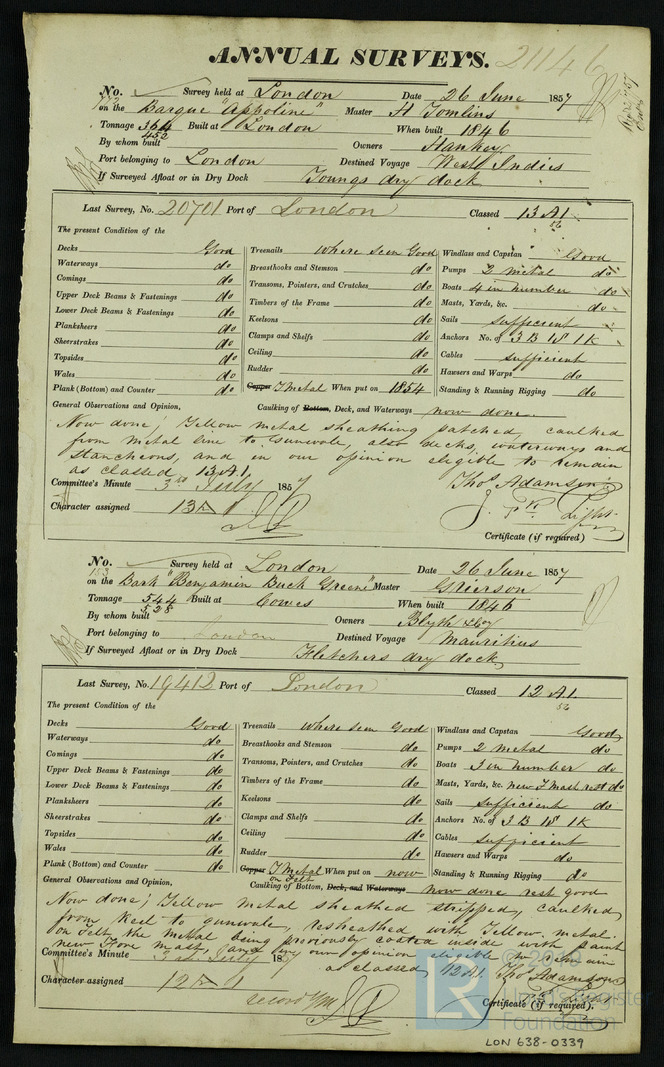 ANNUAL SURVEYS. 21146
No. Survey held at London Date 26 June 1857
on the Barque "Appoline" Master H Tomlins
Tonnage 364 Built at London When built 1846
452
By whom built Owners Hankey
Port belonging to London Destined Voyage West Indies
If Surveyed Afloat or in Dry Dock Youngs dry dock
Last Survey, No. 20701 Port of London Classed 13 A1
56
The present Condition of the
Decks Good Treenails where seen Good Windlass and Capstan Good
Waterways do Breasthooks and Stemson do Pumps 2 metal do
Comings do Transoms, Pointers, and Crutches do Boats 4 in number do
Upper Deck Beams & Fastenings do Timbers of the Frame do Masts, Yards, &c. do
Lower Deck Beams & Fastenings do Keelsons do Sails sufficient
Planksheers do Clamps and Shelfs do Anchors No. of 3 B 1S 1K
Sheerstrakes do Ceiling do Cables sufficient
Topsides do Rudder do Hawsers and Warps do
Wales do Copper Y Metal When put on 1854 Standing & Running Rigging do
Plank (Bottom) and Counter do
General Observations and Opinion, Caulking of Bottom, Deck, and Waterways now done
Now done; Yellow metal sheathing patched, caulked
from metal line to gunwale, also decks, waterways and
stancheons, and in our opinion eligible to remain
as classed, 13 A1, Thos Adamson
Committee's Minute 3rd July 1857
Character assigned 13 A 1 Light
Certificate (if required)
No. 153 Survey held at London Date 26 June 1857
on the Bark "Benjamin Buck Greene" Master Grierson
Tonnage 544 Built at Cowes When built 1846
528
By whom built Owners Blyth & Co
Port belonging to London Destined Voyage Mauritius
If Surveyed Afloat or in Dry Dock Fletchers dry dock
Last Survey, No. 19412 Port of London Classed 12 A1.
56
The present Condition of the
Decks Good Treenails where seen Good Windlass and Capstan Good
Waterways do Breasthooks and Stemson do Pumps 2 metal do
Comings do Transoms, Pointers, and Crutches do Boats 3 in number do
Upper Deck Beams & Fastenings do Timbers of the Frame do Masts, Yards, &c. new F mast rest do
Lower Deck Beams & Fastenings do Keelsons do Sails sufficient do
Planksheers do Clamps and Shelfs do Anchors No. of 3 B 1S 1K
Sheerstrakes do Ceiling do Cables sufficient
Topsides do Rudder do Hawsers and Warps do
Wales do Copper Y Metal on Felt When put on now Standing & Running Rigging do
Plank (Bottom) and Counter do
General Observations and Opinion, Caulking of Bottom, Deck, and Waterways now done rest good
Now done; Yellow metal sheathed stripped, caulked
from keel to gunwale, resheathed with Yellow metal
on Felt, the metal being previously coated inside with paint
new Fore mast, and in our opinion eligible to remain
as classed, 12 A1. Thos Adamson
Committee's Minute 3rd July 1857
Character assigned 12 A 1
Light
Certificate (if required).
© 2020
LR Lloyd's Register
Foundation
LON 638-0339